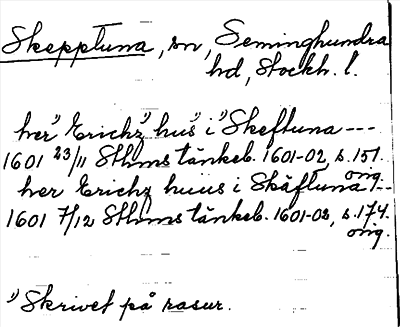 Skepptuna, sn, Seminghundra
hd, Stockh. l.
her¹⁾ Erichz¹⁾ hus¹⁾ i ¹⁾Skeftuna ---
1601 23/11 Sthms tänkeb. 1601-02, s. 151.
orig.
her Erichz huus i Skäftuna ---
1601 7/12 Sthms tänkeb. 1601-02, s. 174.
orig.
¹⁾ Skrivet på rasur.